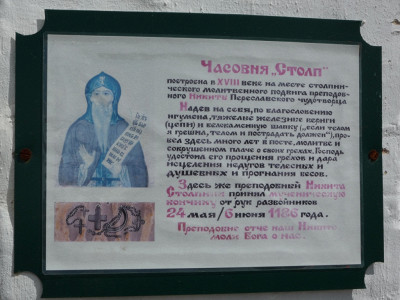 Часовня „Столп"
построена в XVIII веке на месте столпни-
ческого молитвенного подвига преподоб-
ного Никиты Переславского чудотворца
Надев на себя, по благословению
игумена, тяжелые железные вериги
(цепи) и белокаменную шапку („если телом
я грешил, телом и пострадать должен"), про-
вел здесь много лет в посте, молитве и
сокрушенном плаче о своих грехах. Господь
удостоил его прощения грехов и дара
исцеления недугов телесных и
душевных и прогнания бесов.
Здесь же преподобный Никита
Столпник принял мученическую
кончину от рук разбойников
24 мая/6 июня 1186 года.
Преподобне отче наш Никито
моли Бога о нас.